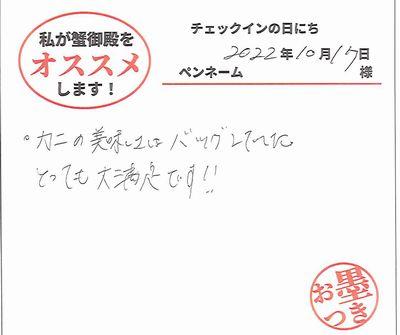 私が蟹御殿を
オススメ
します！
チェックインの日にち
2022年10月17日
ペンネーム 様
。カニの美味しさは バツグンでした。
とっても大満足です!!
墨
おつき